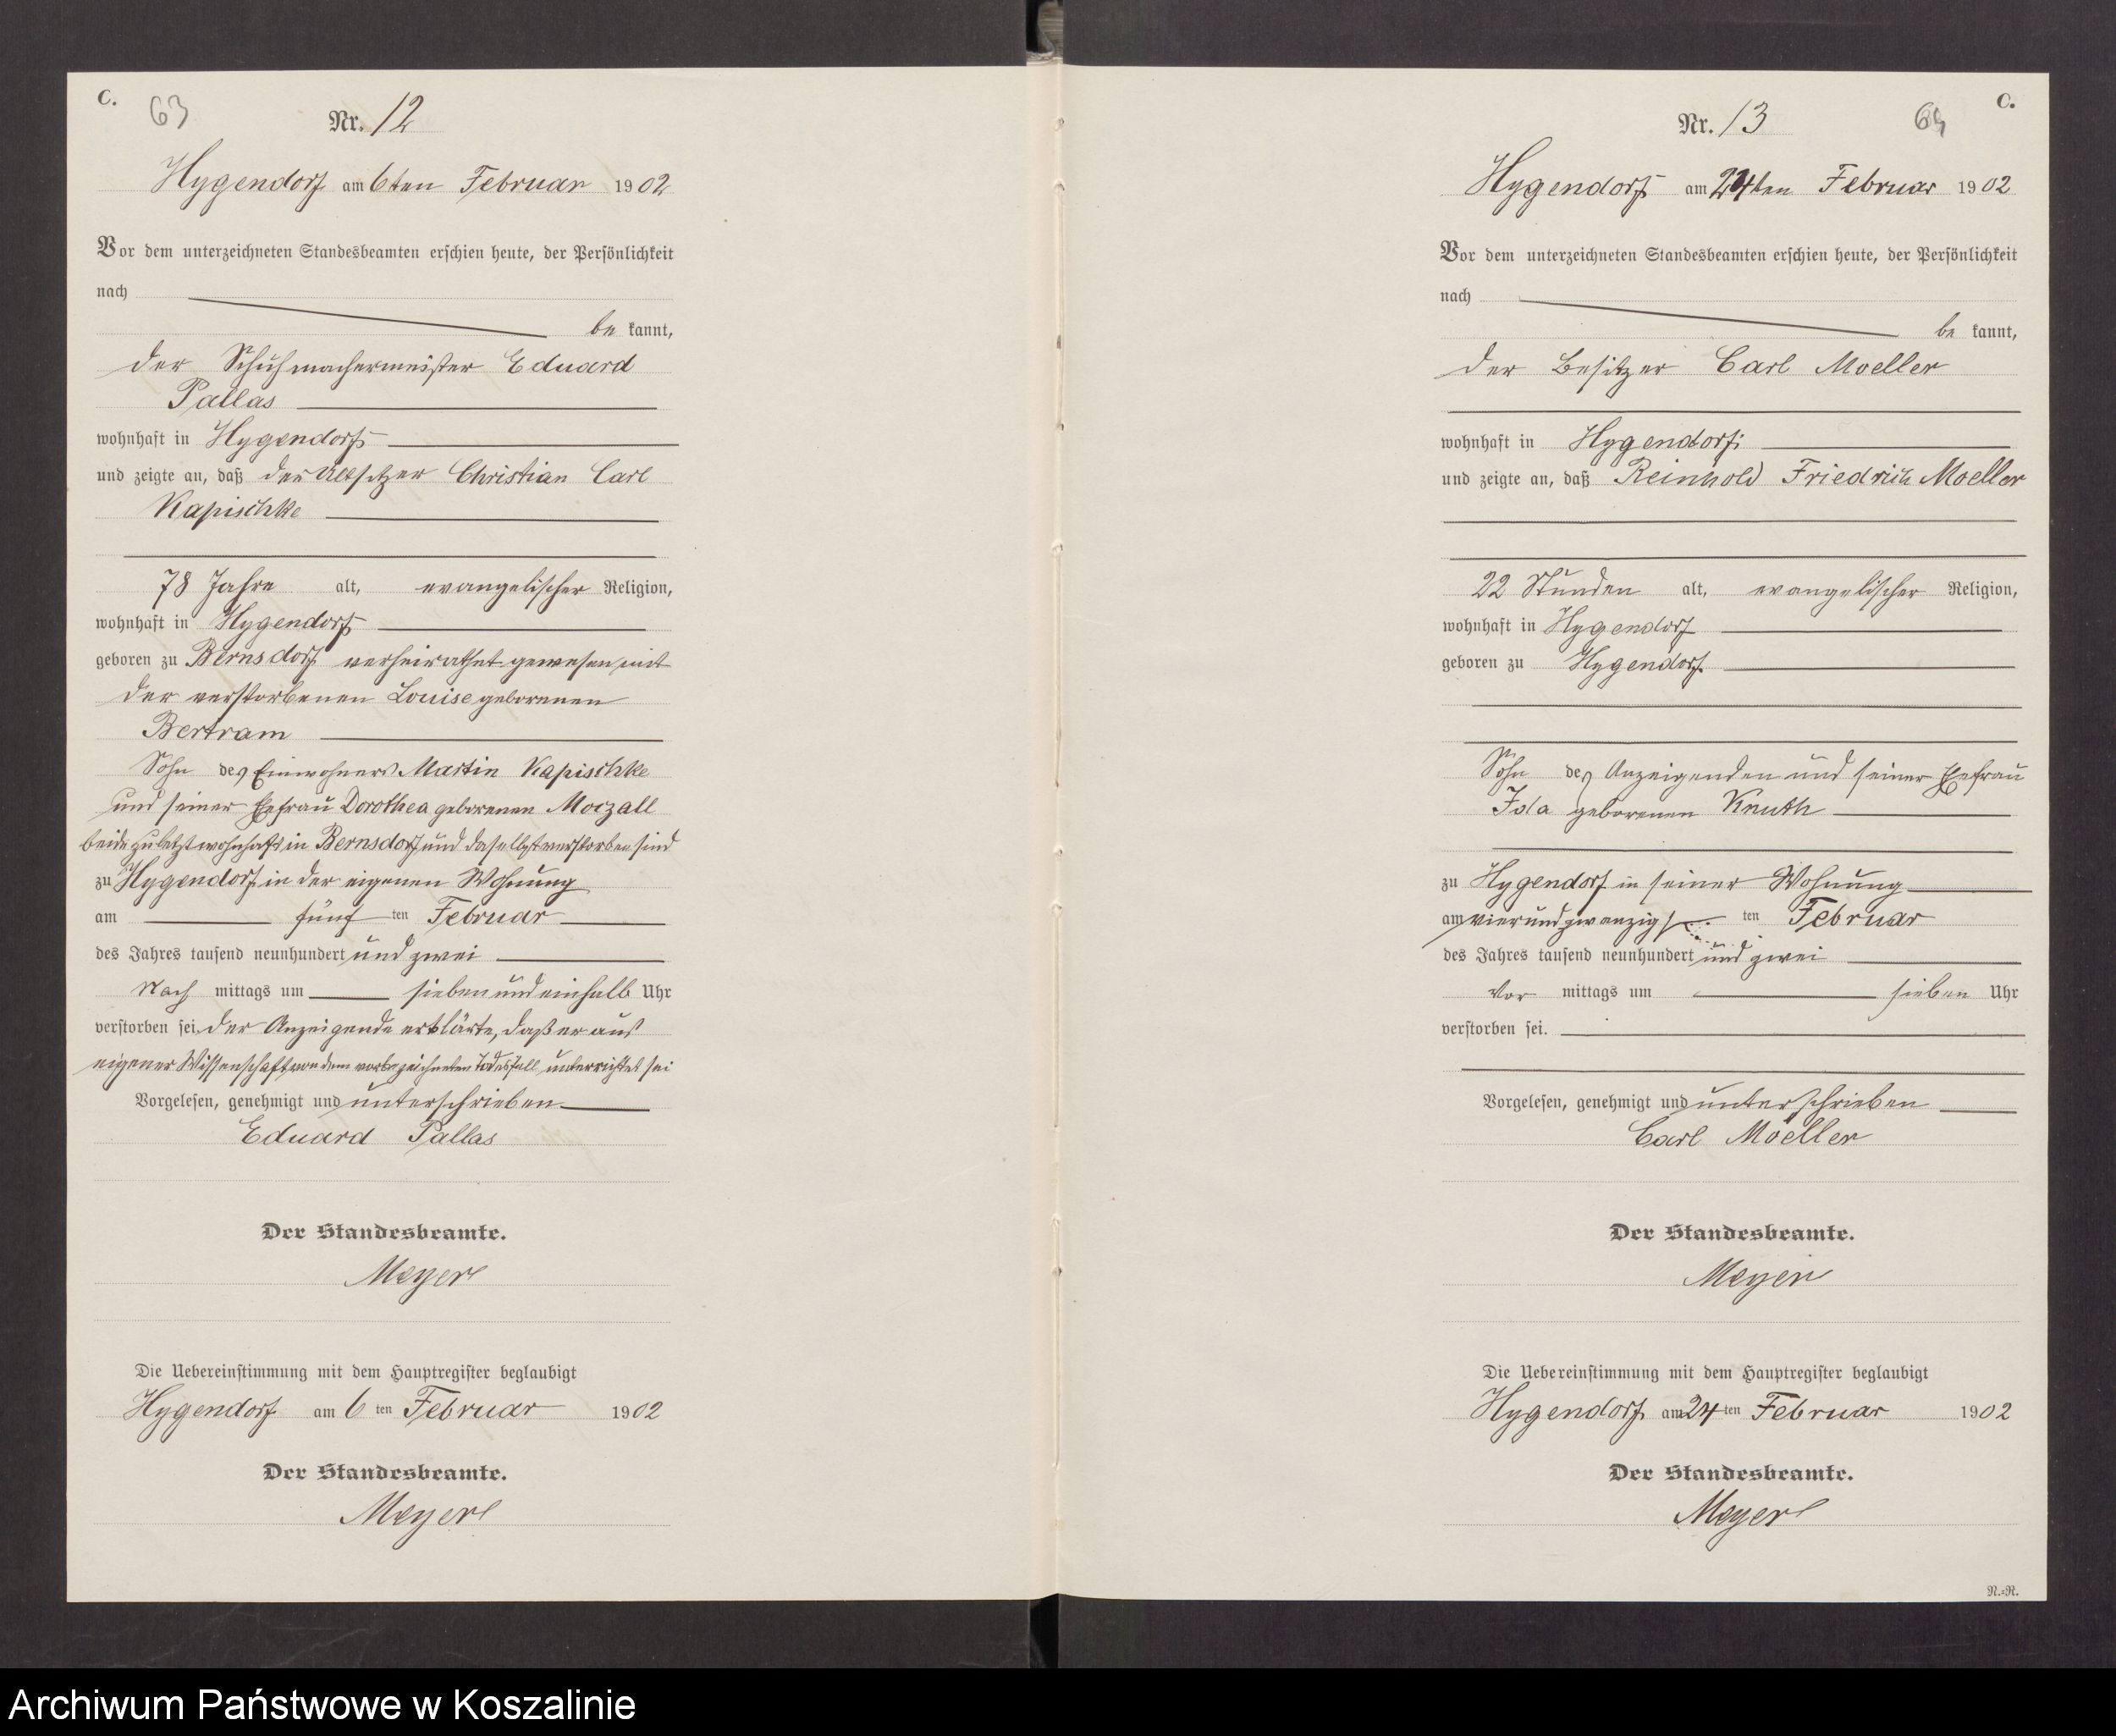 C.
63
Nr. 12
Hygendorf am 6ten Februar 1902
Vor dem unterzeichneten Standesbeamten erschien heute, der Persönlichkeit
nach
be kannt,
der Schuhmachermeister Eduard
Pallas
wohnhaft in Hygendorf
und zeigte an, daß der Altsitzer Christian Carl
Kapischke
78 Jahre alt, evangelischer Religion,
wohnhaft in Hygendorf
geboren zu Bernsdorf verheirathet gewesen mit
der verstorbenen Louise geborenen
Bertram
Sohn des Einwohners Martin Kapischke
und seiner Ehefrau Dorothea geborenen Moczall
beide zuletzt wohnhaft in Bernsdorf und daselbst verstorben sind
zu Hygendorf in der eigenen Wohnung
am fünf ten Februar
des Jahres tausend neunhundert und zwei
Nach mittags um sieben und einhalb Uhr
verstorben sei. Der Anzeigende erklärte, daß er aus
eigener Wissenschaft von dem vorbezeichneten Todesfall unterrichtet sei
Vorgelesen, genehmigt und unterschrieben
Eduard Pallas
Der Standesbeamte.
Meyer
Die Uebereinstimmung mit dem Hauptregister beglaubigt
Hygendorf am 6 ten Februar 1902
Der Standesbeamte.
Meyer
C.
64
Nr. 13
Hygendorf am 24ten Februar 1902
Vor dem unterzeichneten Standesbeamten erschien heute, der Persönlichkeit
nach
be kannt,
der Besitzer Carl Moeller
wohnhaft in Hygendorf
und zeigte an, daß Reinhold Friedrich Moeller
22 Stunden alt, evangelischer Religion,
wohnhaft in Hygendorf
geboren zu Hygendorf
Sohn des Anzeigenden und seiner Ehefrau
Ida geborenen Knuth
zu Hygendorf in seiner Wohnung
am vierundzwanzigs ten Februar
des Jahres tausend neunhundert und zwei
Vor mittags um sieben Uhr
verstorben sei.
Vorgelesen, genehmigt und unterschrieben
Carl Moeller
Der Standesbeamte.
Meyer
Die Uebereinstimmung mit dem Hauptregister beglaubigt
Hygendorf am 24 ten Februar 1902
Der Standesbeamte.
Meyer
N.=N.
Archiwum Państwowe w Koszalinie